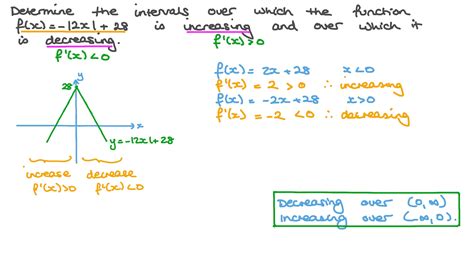 Determine the intervals over which the function
f(x)=-|2x|+28 is increasing and over which it
is decreasing. f'(x)>0
f'(x)<0
y
28
x
y=-|2x|+28
increase decrease
f'(x)>0 f'(x)<0
f(x) = 2x+28 x<0
f'(x) = 2 > 0 ∴ increasing
f(x) = -2x+28 x>0
f'(x) = -2 <0 ∴ decreasing
Decreasing over (0,∞)
Increasing over (-∞,0).